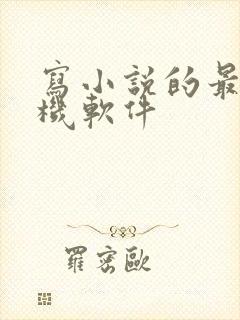 寫小說的最
機軟件
羅密歐